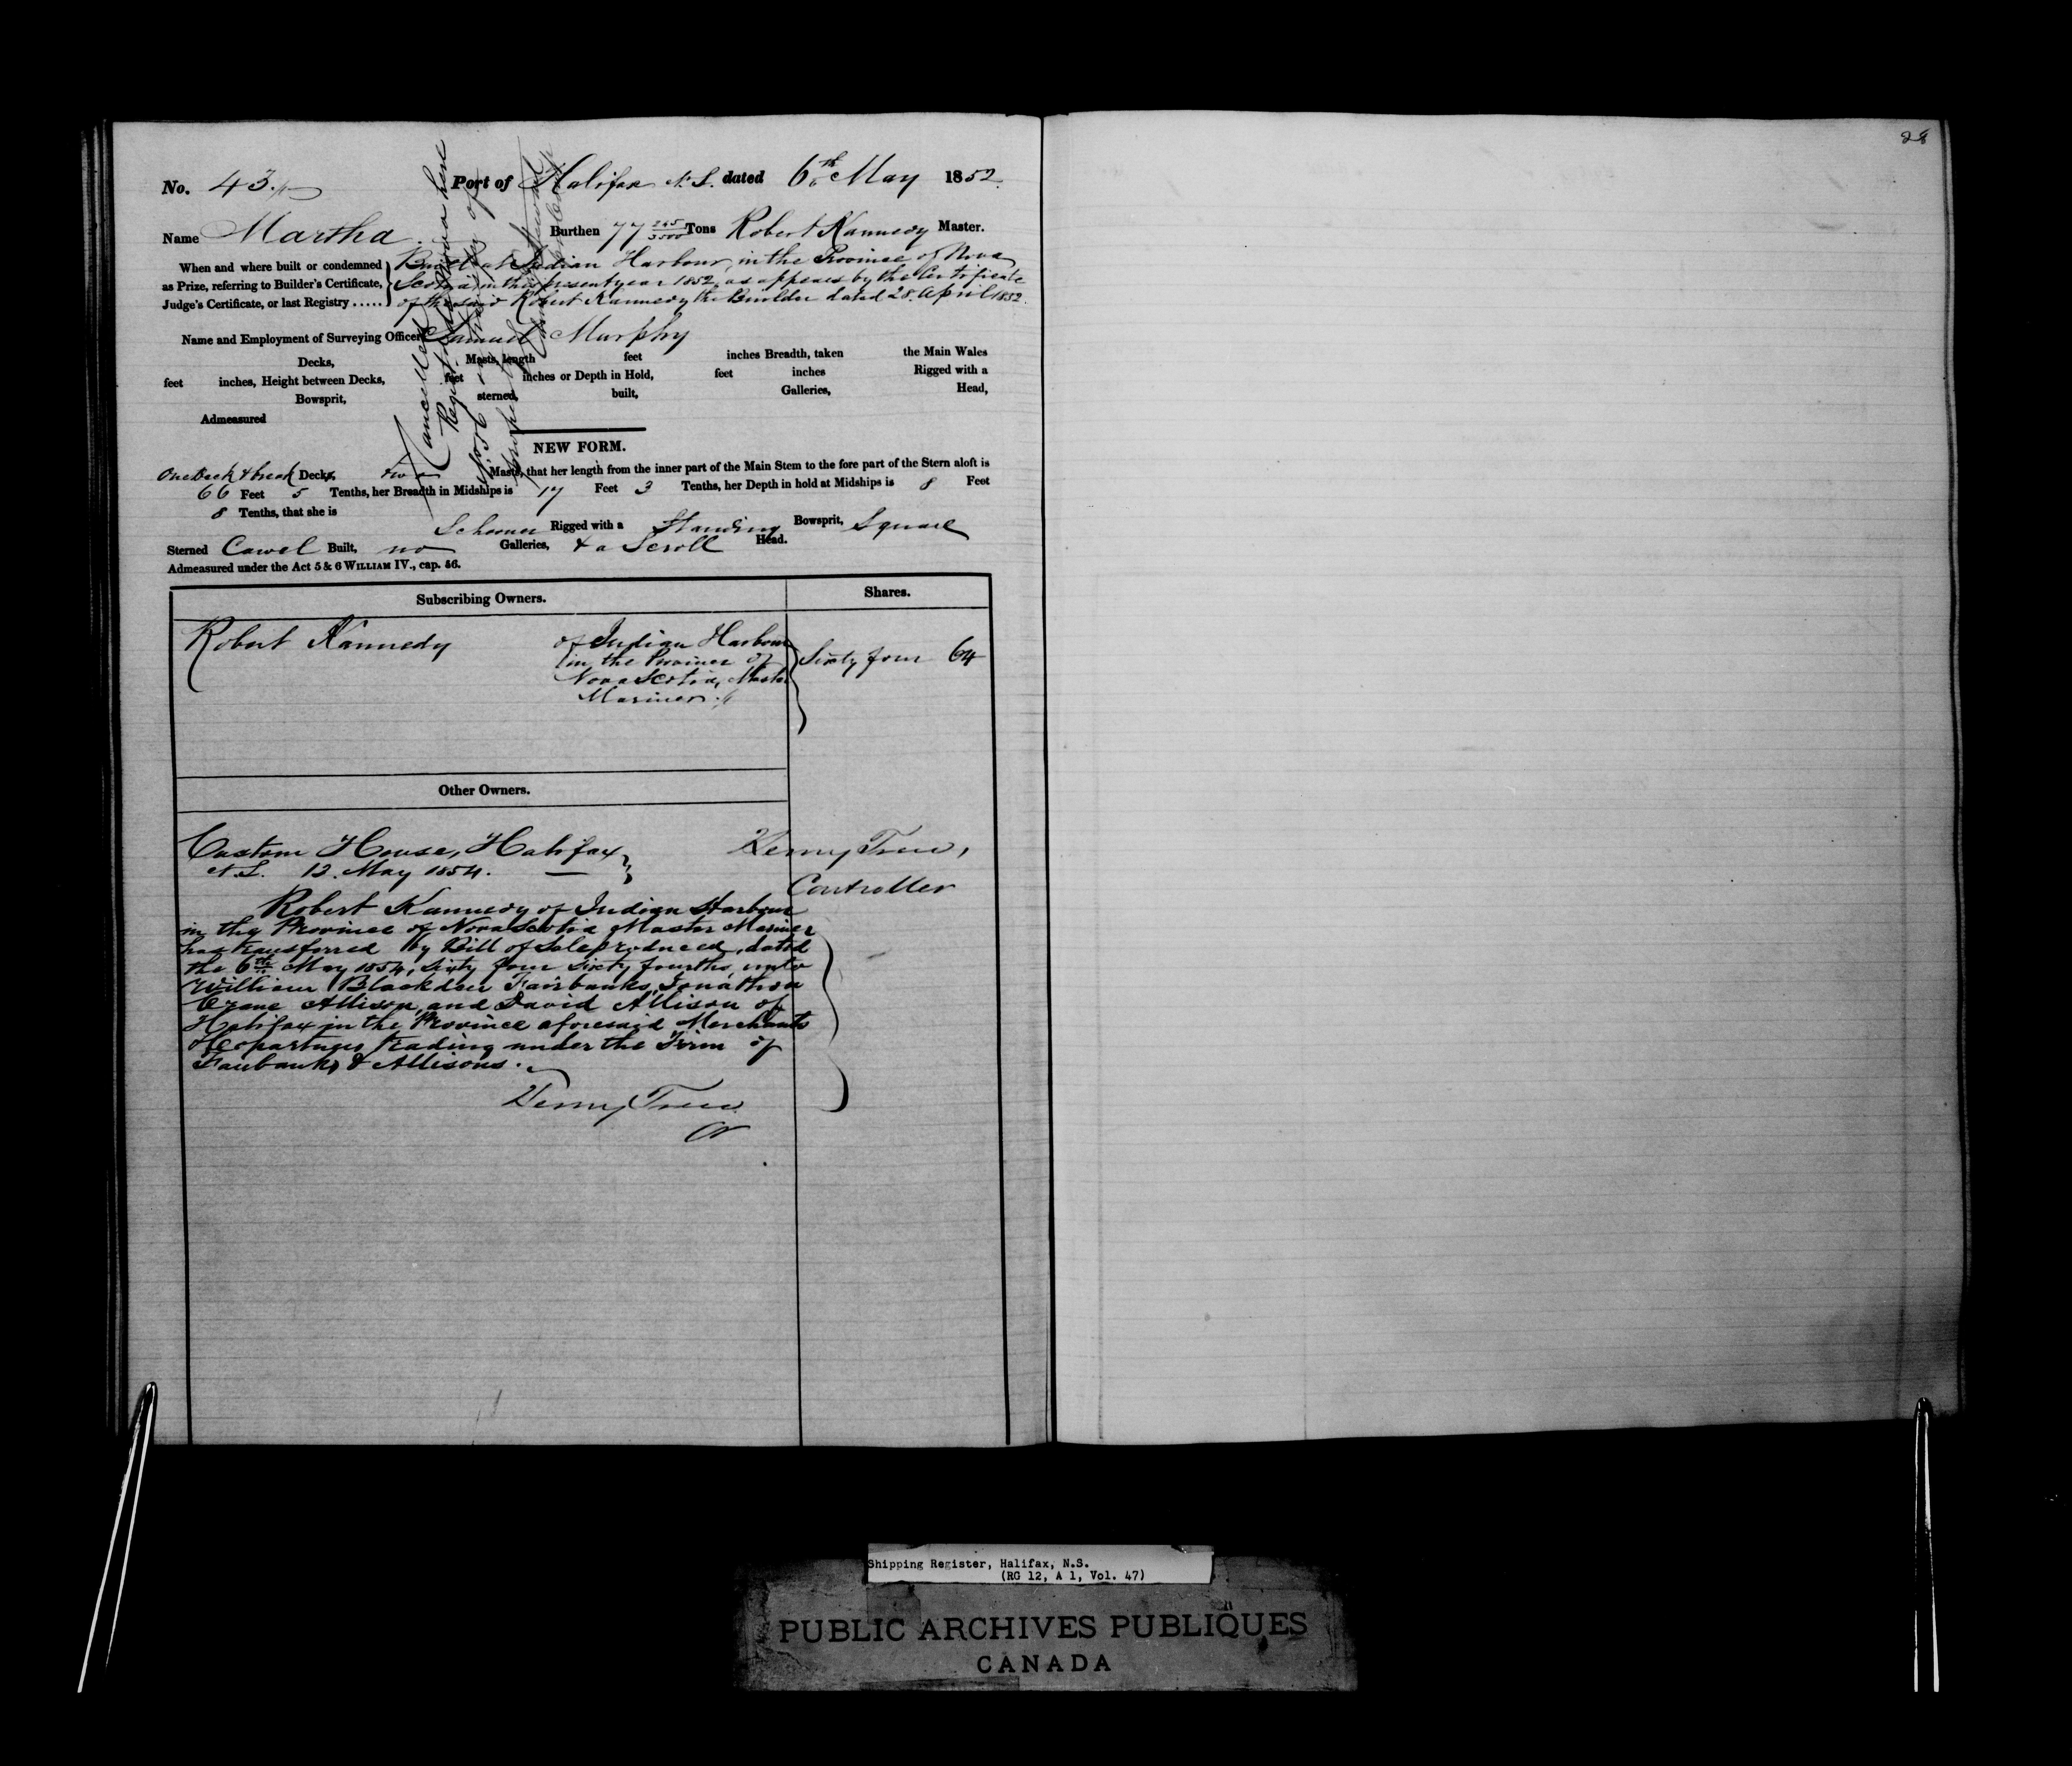 28
No. 43. Port of Halifax N.S. dated 6th May 1852.
Name Martha. Burthen 77 245/3500 Tons Robert Kannedy Master.
When and where built or condemned as Prize, referring to Builder's Certificate, Judge's Certificate, or last Registry .....
Built at Indian Harbour, in the Province of Nova
Scotia, in this present year 1852, as appears by the Certificate
of the said Robert Kannedy the Builder dated 28. April 1852.
Name and Employment of Surveying Officer Samuel Murphy
Decks, Masts, length feet inches Breadth, taken the Main Wales
feet inches, Height between Decks, feet inches or Depth in Hold, feet inches Rigged with a
Bowsprit, sterned, built, Galleries, Head,
Admeasured
Cancelled
NEW FORM.
One Deck & break Decks, two Masts, that her length from the inner part of the Main Stem to the fore part of the Stern aloft is
66 Feet 5 Tenths, her Breadth in Midships is 17 Feet 3 Tenths, her Depth in hold at Midships is 8 Feet
8 Tenths, that she is Schooner Rigged with a Standing Bowsprit, Square
Sterned Carvel Built, no Galleries, & a Scroll Head.
Admeasured under the Act 5 & 6 WILLIAM IV., cap. 56.
Subscribing Owners. Shares.
Robert Kannedy of Indian Harbour
in the Province of
Nova Scotia, Master
Mariner.
Sixty four 64
Other Owners.
Custom House, Halifax
N.S. 12. May 1854.
Henry Trew,
Controller
Robert Kannedy of Indian Harbour
in the Province of Nova Scotia Master Mariner
has transferred by Bill of Sale produced, dated
the 6th May 1854, sixty four sixty fourths, unto
William Blackden Fairbanks, Jonathan
Crane Allison, and David Allison of
Halifax in the Province aforesaid Merchants
& Copartners trading under the Firm of
Fairbanks & Allisons.
Henry Trew
Cr
Shipping Register, Halifax, N.S.
(RG 12, A 1, Vol. 47)
PUBLIC ARCHIVES PUBLIQUES
CANADA